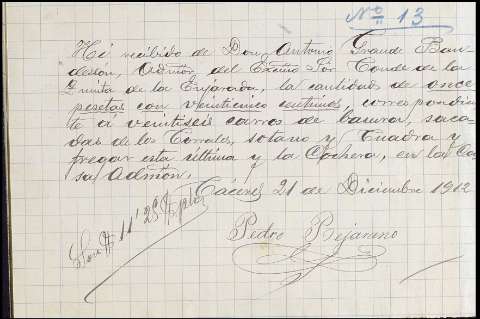 Nº 13
He recibido de Don Antonio Grande Ban-
deson, Admor, del Excmo Sor Conde de la
Quinta de la Enjarada, la cantidad de once
pesetas con veinticinco centimos, correspondien
te á veintiseis carros de basura, saca
das de los Corrales, sotano y Cuadra y
fregar esta última y la Cochera, en la Ca
sa Admón.
Cáceres 21 de Diciembre 1912
Son # 11'25 # ptas
Pedro Bejarano